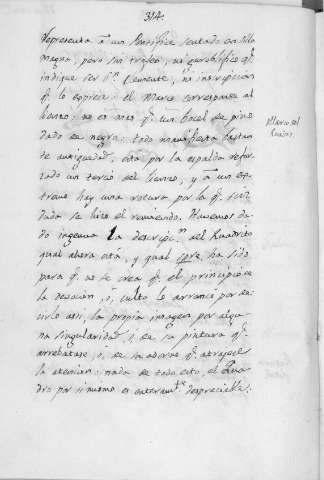 314.
representa à un Pontifice sentado en silla
magna, pero sin trofeo, ni geroglifico qᵉ.
indique ser Sⁿ. Clemente, ni inscripcion
qᵉ. lo exprese. El Marco correspon.. al
lienso: no es mas qᵉ. un bocel de pino
dado de negro: todo manifiesta bastan
te antiguedad, está por la espalda refor
zado un tercio del lienso, y à un es
tremo hay una rotura por la qᵉ. sin
duda se hizo el remiendo. Hicimos da
do ingenua la descripⁿ. del Quadrito
qual ahora está, y qual spre. ha sido
para qᵉ. no se crea qᵉ. el principio de
la devocion, ò, culto le arranca por de
cirlo asi, la propia imagen por algu
na singularidad, ò de su pintura qᵉ.
arrebatase, ò, de su adorno qᵉ. atrajese
la atencion: nada de todo esto, el Qua
dro por si mismo es enteramᵗᵉ. despreciable:
Marco del